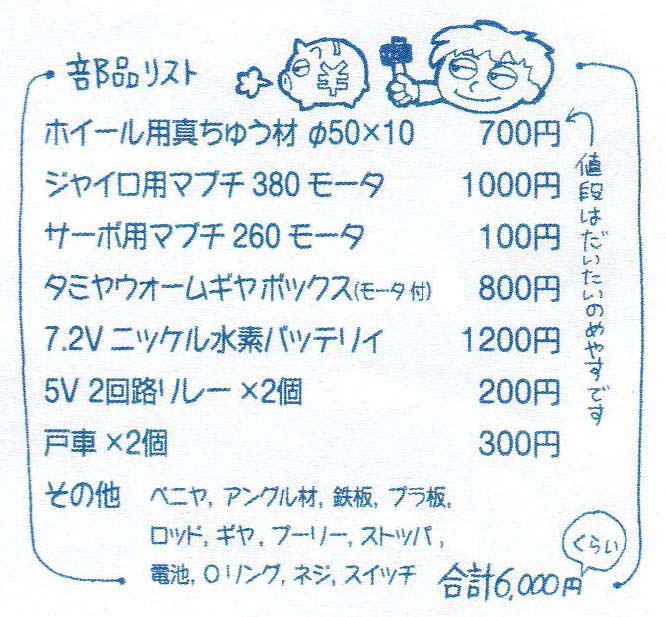 部品リスト
¥
ホイール用真ちゅう材 φ50×10 700円
ジャイロ用マブチ 380 モータ 1000円
サーボ用マブチ 260 モータ 100円
タミヤウォームギヤボックス(モータ付) 800円
7.2V ニッケル水素バッテリィ 1200円
5V 2回路リレー ×2個 200円
戸車 ×2個 300円
値段はだいたいのめやすです
その他 ベニヤ, アングル材, 鉄板, プラ板,
ロッド, ギヤ, プーリー, ストッパ,
電池, Oリング, ネジ, スイッチ
合計6,000円
くらい